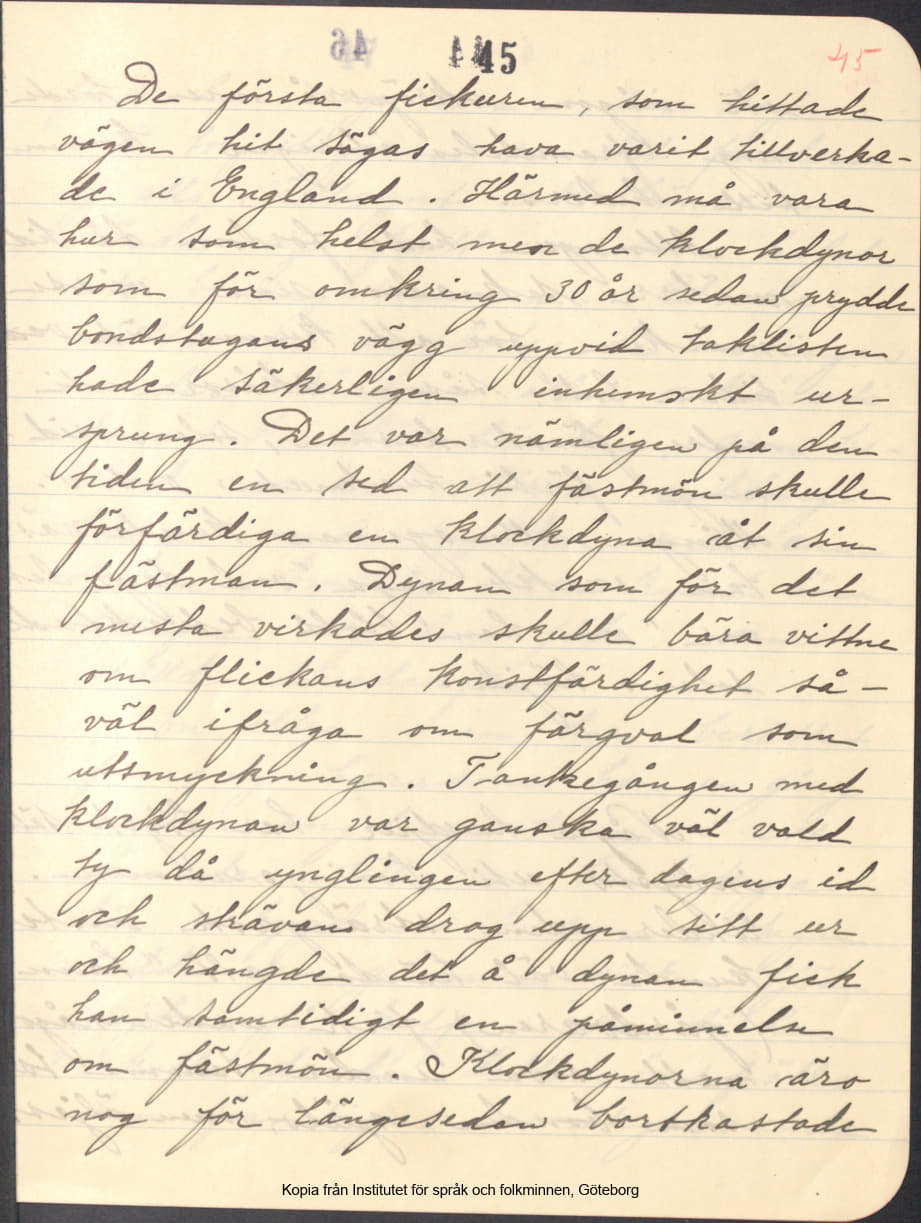 45
45
De första fickuren, som hittade
vägen hit sägas hava varit tillverka-
de i England. Härmed må vara
hur som helst men de klockdynor
som för omkring 30 år sedan prydde
bondstugans vägg uppvid taklisten
hade säkerligen inhemskt ur-
sprung. Det var nämligen på den
tiden en sed att fästmön skulle
förfärdiga en klockdyna åt sin
fästman. Dynan som för det
mesta virkades skulle bära vittne
om flickans konstfärdighet så-
väl ifråga om färgval som
utsmyckning. Tankegången med
klockdynan var ganska väl vald
ty då ynglingen efter dagens id
och strävan drog upp sitt ur
och hängde det å dynan fick
han samtidigt en påminnelse
om fästmön. Klockdynorna äro
nog för längesedan bortkastade
Kopia från Institutet för språk och folkminnen, Göteborg